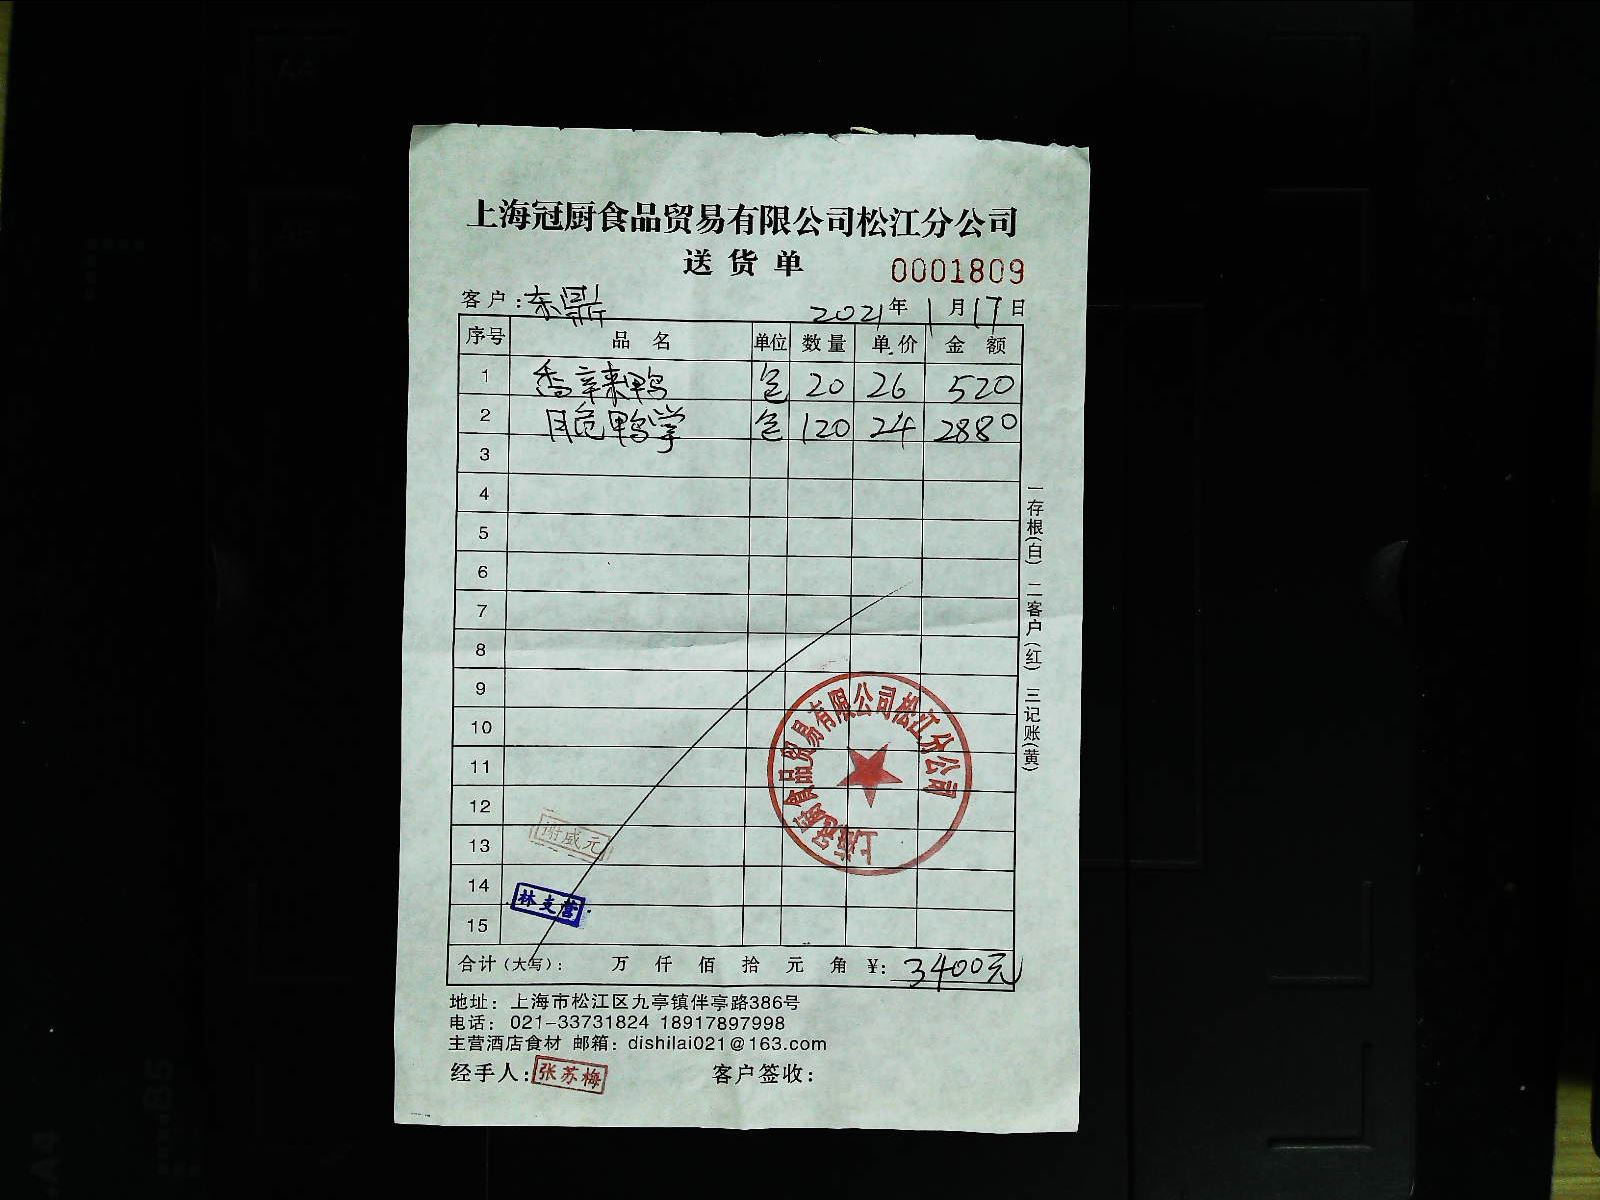 上海冠厨食品贸易有限公司松江分公司
送货单
0001809
客户:东鼎 2021年1月17日
序号 品名 单位 数量 单价 金额
1 香辣鸭 包 20 26 520
2 脆鸭掌 包 120 24 2880
3
4
5
6
7
8
9
10
11
12
13
14
15
一存根(白) 二客户(红) 三记账(黄)
上海冠厨食品贸易有限公司松江分公司
谢威元
林支营
合计(大写): 万 仟 佰 拾 元 角 ¥: 3400元
地址: 上海市松江区九亭镇伴亭路386号
电话: 021-33731824 18917897998
主营酒店食材 邮箱: dishilai021@163.com
经手人:张苏梅 客户签收: